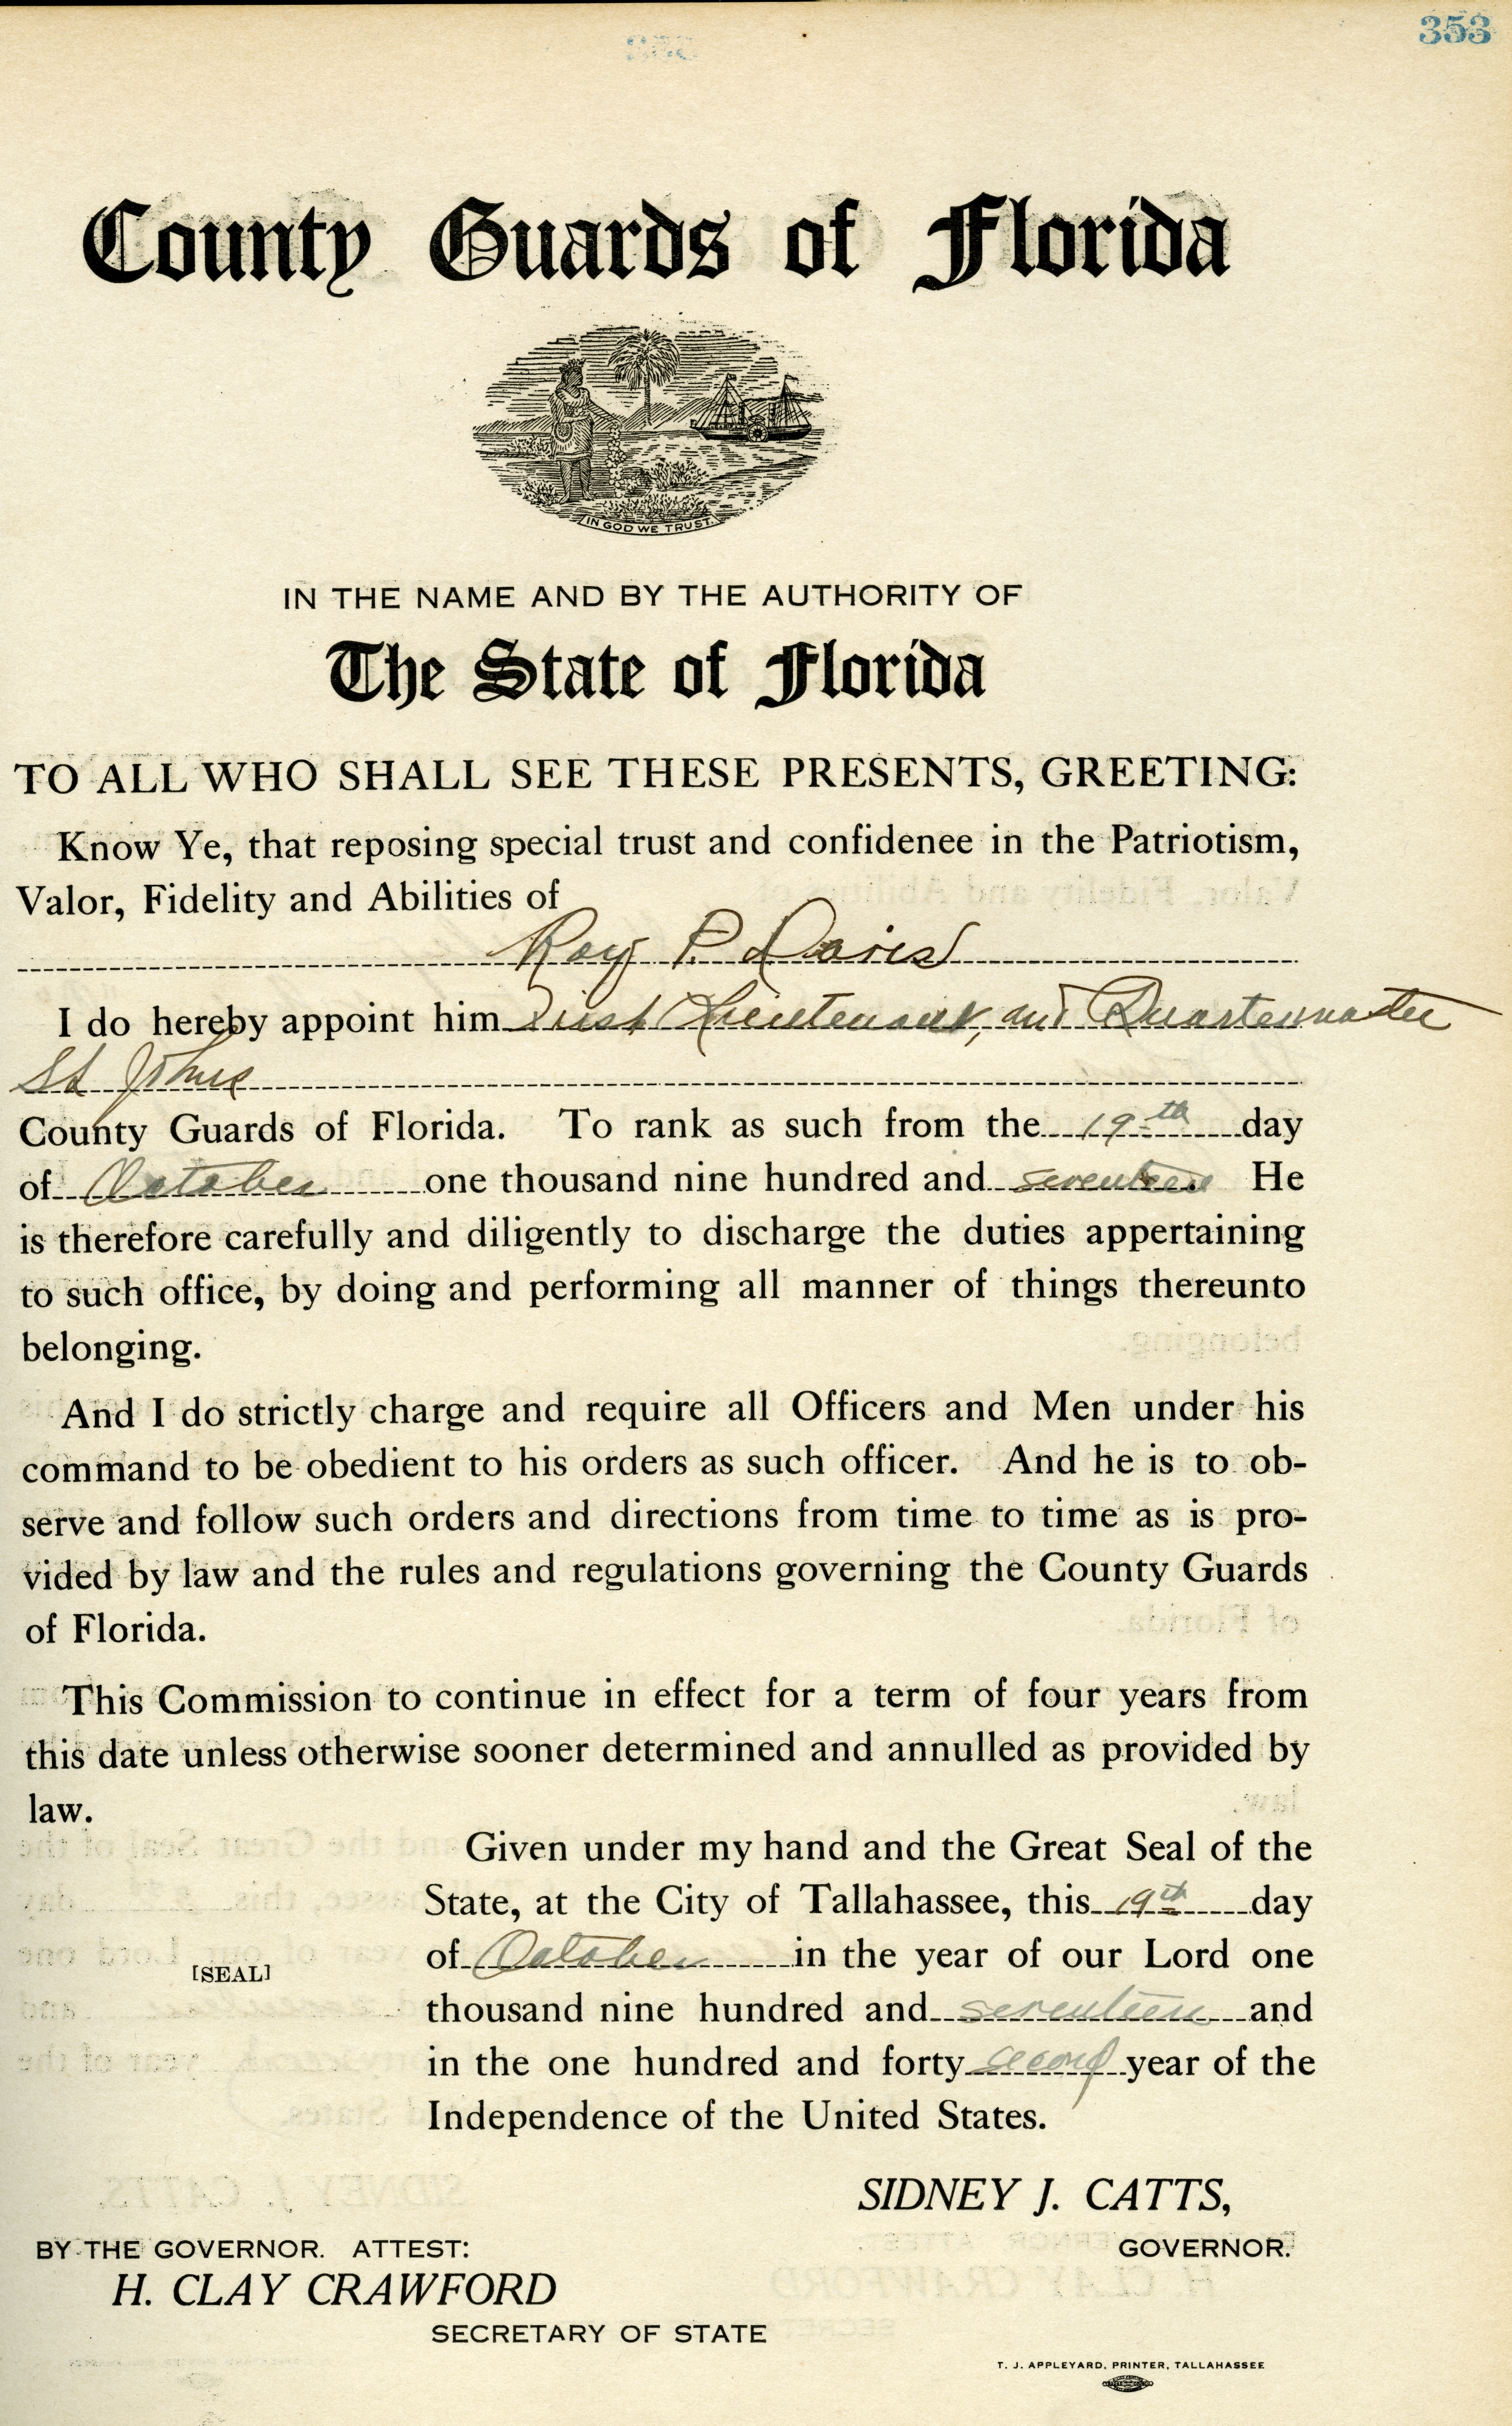 353
County Guards of Florida
IN GOD WE TRUST.
IN THE NAME AND BY THE AUTHORITY OF
The State of Florida
TO ALL WHO SHALL SEE THESE PRESENTS, GREETING:
Know Ye, that reposing special trust and confidenee in the Patriotism,
Valor, Fidelity and Abilities of
Roy P. Davis
I do hereby appoint him First Lieutenant, and Quartermaster
St Johns
County Guards of Florida. To rank as such from the 19th day
of October one thousand nine hundred and seventeen He
is therefore carefully and diligently to discharge the duties appertaining
to such office, by doing and performing all manner of things thereunto
belonging.
And I do strictly charge and require all Officers and Men under his
command to be obedient to his orders as such officer. And he is to ob-
serve and follow such orders and directions from time to time as is pro-
vided by law and the rules and regulations governing the County Guards
of Florida.
This Commission to continue in effect for a term of four years from
this date unless otherwise sooner determined and annulled as provided by
law.
Given under my hand and the Great Seal of the
State, at the City of Tallahassee, this 19th day
of October in the year of our Lord one
[SEAL]
thousand nine hundred and seventeen and
in the one hundred and forty second year of the
Independence of the United States.
SIDNEY J. CATTS,
BY THE GOVERNOR. ATTEST: GOVERNOR.
H. CLAY CRAWFORD
SECRETARY OF STATE
T. J. APPLEYARD, PRINTER, TALLAHASSEE